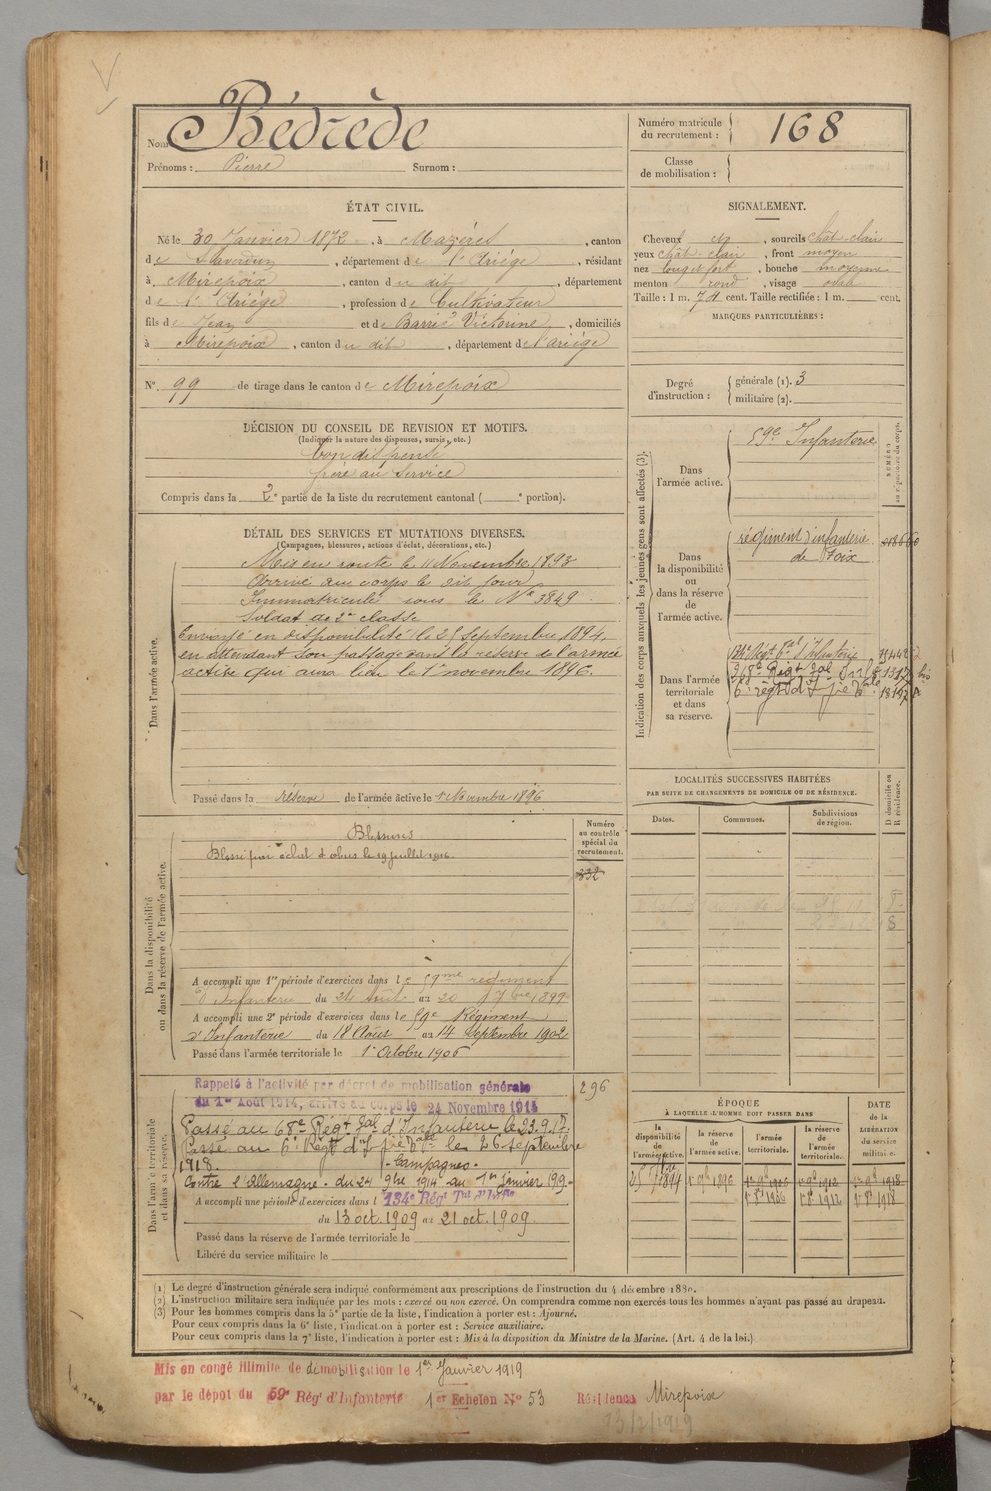 Nom Bédrède
Prénoms : Pierre Surnom :
Numéro matricule du recrutement : 168
Classe de mobilisation :
ÉTAT CIVIL.
Né le 30 Janvier 1872, à Mazères, canton
de Saverdun, département de l'Ariège, résidant
à Mirepoix, canton du dit, département
de l'Ariège, profession de Cultivateur
fils de Jean et de Barrié Victorine, domiciliés
à Mirepoix, canton du dit, département de l'ariège
N°. 99 de tirage dans le canton de Mirepoix
SIGNALEMENT.
Cheveux et, sourcils chât-clair
yeux chât-clair, front moyen
nez long et fort, bouche moyenne
menton rond, visage ovale
Taille : 1 m. 74 cent. Taille rectifiée : 1 m. cent.
MARQUES PARTICULIÈRES :
Degré d'instruction : générale (1). 3
militaire (2).
DÉCISION DU CONSEIL DE REVISION ET MOTIFS.
(Indiquer la nature des dispenses, sursis, etc.)
bon dispensé
frère au Service
Compris dans la 2e partie de la liste du recrutement cantonal ( e portion).
DÉTAIL DES SERVICES ET MUTATIONS DIVERSES.
(Campagnes, blessures, actions d'éclat, décorations, etc.)
Dans l'armée active.
Mis en route le 11 Novembre 1893
Arrivé au corps le dit jour
Immatriculé sous le N° 3849.
Soldat de 2e classe
Envoyé en disponibilité le 25 Septembre 1894,
en attendant son passage dans la réserve de l'armée
active qui aura lieu le 1er novembre 1896.
Passé dans la réserve de l'armée active le 1er Novembre 1896
Indication des corps auxquels les jeunes gens sont affectés (3).
NUMÉRO au répertoire du corps.
Dans l'armée active.
59e Infanterie
Dans la disponibilité ou dans la réserve de l'armée active.
régiment d'infanterie
de Foix
Dans l'armée territoriale et dans sa réserve.
LOCALITÉS SUCCESSIVES HABITÉES
PAR SUITE DE CHANGEMENTS DE DOMICILE OU DE RÉSIDENCE.
Dates. Communes. Subdivisions de région. D domicile ou R résidence.
Dans la disponibilité ou dans la réserve de l'armée active.
Numéro au contrôle spécial du recrutement.
332
Blessures
Blessé par éclat d'obus le 19 juillet 1916.
A accompli une 1re période d'exercices dans le 59me régiment
d'Infanterie du 24 Août au 20 7bre 1899
A accompli une 2e période d'exercices dans le 59e Régiment
d'Infanterie du 18 Août au 14 Septembre 1902
Passé dans l'armée territoriale le 1er Octobre 1906
Dans l'armée territoriale et dans sa réserve.
296
Rappelé à l'activité par décret de mobilisation générale
du 1er Août 1914, arrivé au corps le 24 Novembre 1914
Passé au 68e Régt Tal d'Infanterie le 23.9.17.
Passé au 6e Régt d'Ifrie Dale les 26 septembre
1918.
- Campagnes -
Contre l'Allemagne. du 24 9bre 1914 au 1er janvier 1919.
A accompli une période d'exercices dans l 134e Régt Tal d'Infie
du 13 oct. 1909 au 21 oct. 1909.
Passé dans la réserve de l'armée territoriale le
Libéré du service militaire le
ÉPOQUE
À LAQUELLE L'HOMME DOIT PASSER DANS
la disponibilité de l'armée active. la réserve de l'armée active. l'armée territoriale. la réserve de l'armée territoriale.
DATE de la LIBÉRATION du service militaire.
(1) Le degré d'instruction générale sera indiqué conformément aux prescriptions de l'instruction du 4 décembre 1889.
(2) L'instruction militaire sera indiquée par les mots : exercé ou non exercé. On comprendra comme non exercés tous les hommes n'ayant pas passé au drapeau.
(3) Pour les hommes compris dans la 5e partie de la liste, l'indication à porter est : Ajourné.
Pour ceux compris dans la 6e liste, l'indication à porter est : Service auxiliaire.
Pour ceux compris dans la 7e liste, l'indication à porter est : Mis à la disposition du Ministre de la Marine. (Art. 4 de la loi.)
Mis en congé illimité de démobilisation le 1er Janvier 1919
par le dépôt du 59e Régt d'Infanterie 1er Echelon N° 53 Résidence Mirepoix
13/2/1919